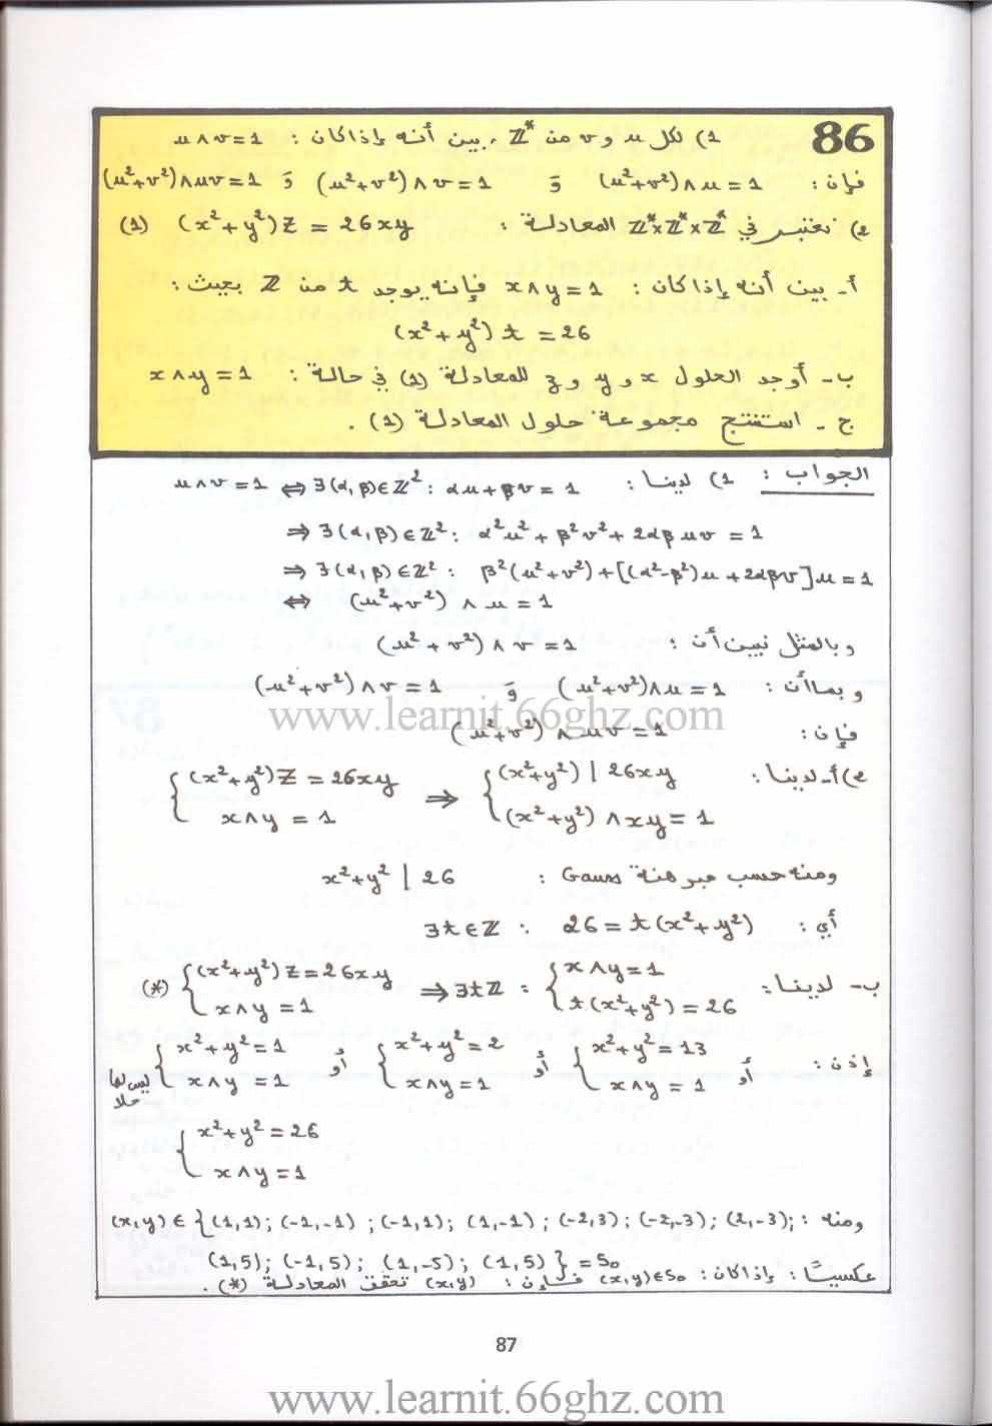 86
1) لكل u و v من ℤ* ، بين أنه إذا كان : u∧v=1
فإن : (u²+v²)∧u=1 و (u²+v²)∧v=1 و (u²+v²)∧uv=1
2) نعتبر في ℤ*×ℤ*×ℤ* المعادلة : (x²+y²)z = 26xy (1)
أ- بين أنه إذا كان : x∧y=1 فإنه يوجد t من ℤ بحيث :
(x²+y²)t = 26
ب- أوجد الحلول x و y و z للمعادلة (1) في حالة : x∧y=1
ج- استنتج مجموعة حلول المعادلة (1) .
الجواب : 1) لدينا : u∧v=1 ⇔ ∃(α,β)∈ℤ² : αu+βv=1
⇒ ∃(α,β)∈ℤ² : α²u²+β²v²+2αβuv=1
⇒ ∃(α,β)∈ℤ² : β²(u²+v²)+[(α²-β²)u+2αβv]u=1
⇔ (u²+v²)∧u=1
وبالمثل نبين أن : (u²+v²)∧v=1
وبما أن : (u²+v²)∧u=1 و (u²+v²)∧v=1
www.learnit.66ghz.com
فإن : (u²+v²)∧uv=1
2) أ- لدينا : { (x²+y²)z=26xy ⇒ { (x²+y²) | 26xy
x∧y=1 (x²+y²)∧xy=1
ومنه حسب مبرهنة Gauss : x²+y² | 26
أي : ∃t∈ℤ : 26=t(x²+y²)
ب- لدينا : (*) { (x²+y²)z=26xy ⇒ ∃tℤ : { x∧y=1
x∧y=1 t(x²+y²)=26
إذن : { x²+y²=1 أو { x²+y²=2 أو { x²+y²=13 أو
ليس لها حلا x∧y=1 x∧y=1 x∧y=1
{ x²+y²=26
x∧y=1
ومنه : (x,y)∈{(1,1); (-1,-1); (-1,1); (1,-1); (-2,3); (-2,-3); (2,-3);
(1,5); (-1,5); (1,-5); (1,5)}=S₀
عكسيا : إذا كان : (x,y)∈S₀ فإن : (x,y) تحقق المعادلة (*) .
87
www.learnit.66ghz.com